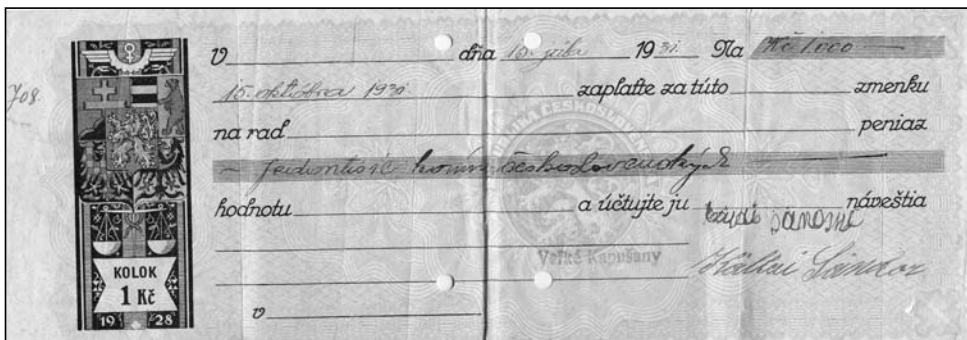 V dňa 10. júla 1931. Na Kč 1.000 —
708.
15. októbra 1931. zaplaťte za túto zmenku
na rad peniaz
— jedontisíc korún československých —
hodnotu a účtujte ju návestia
Veľké Kapušany
Kállai Sándor
KOLOK
1 Kč
19 28
v